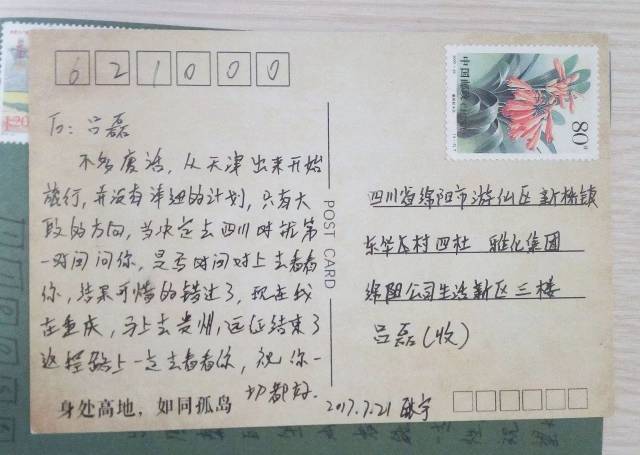 621000
To: 吕磊
不多废话，从天津出来开始
旅行，并没有详细的计划，只有大
致的方向，当决定去四川时就第
一时间问你，是否时间对上去看看
你，结果可惜的错过了，现在我
在重庆，马上去贵州，远征结束了
返程路上一定去看看你，祝你一
切都好.
身处高地，如同孤岛
2017.7.21
POST CARD
中国邮政
80分
四川省绵阳市游仙区新桥镇
东华村四社 雅化集团
绵阳公司生活新区三楼
吕磊（收）
1.20